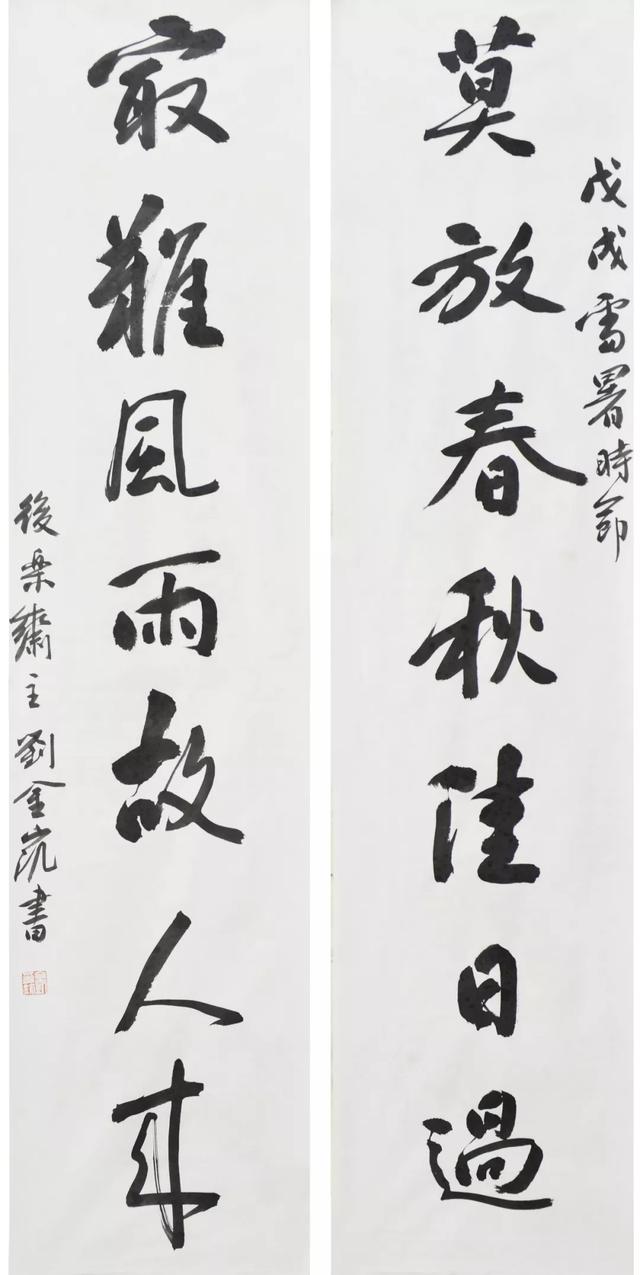 戊戌暑時節
莫放春秋佳日過
最難風雨故人來
後樂主劉金凱書